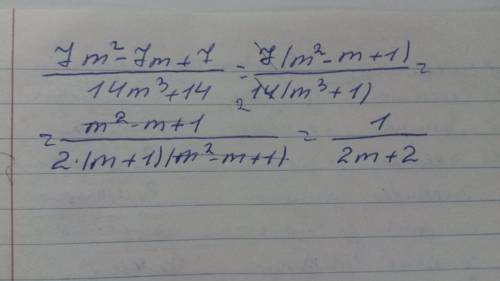 (7m² - 7m + 7)/(14m³ + 14) = 7(m² - m + 1)/14(m³ + 1) 2 =
= (m² - m + 1)/(2·(m + 1)(m² - m + 1)) = 1/(2m + 2)